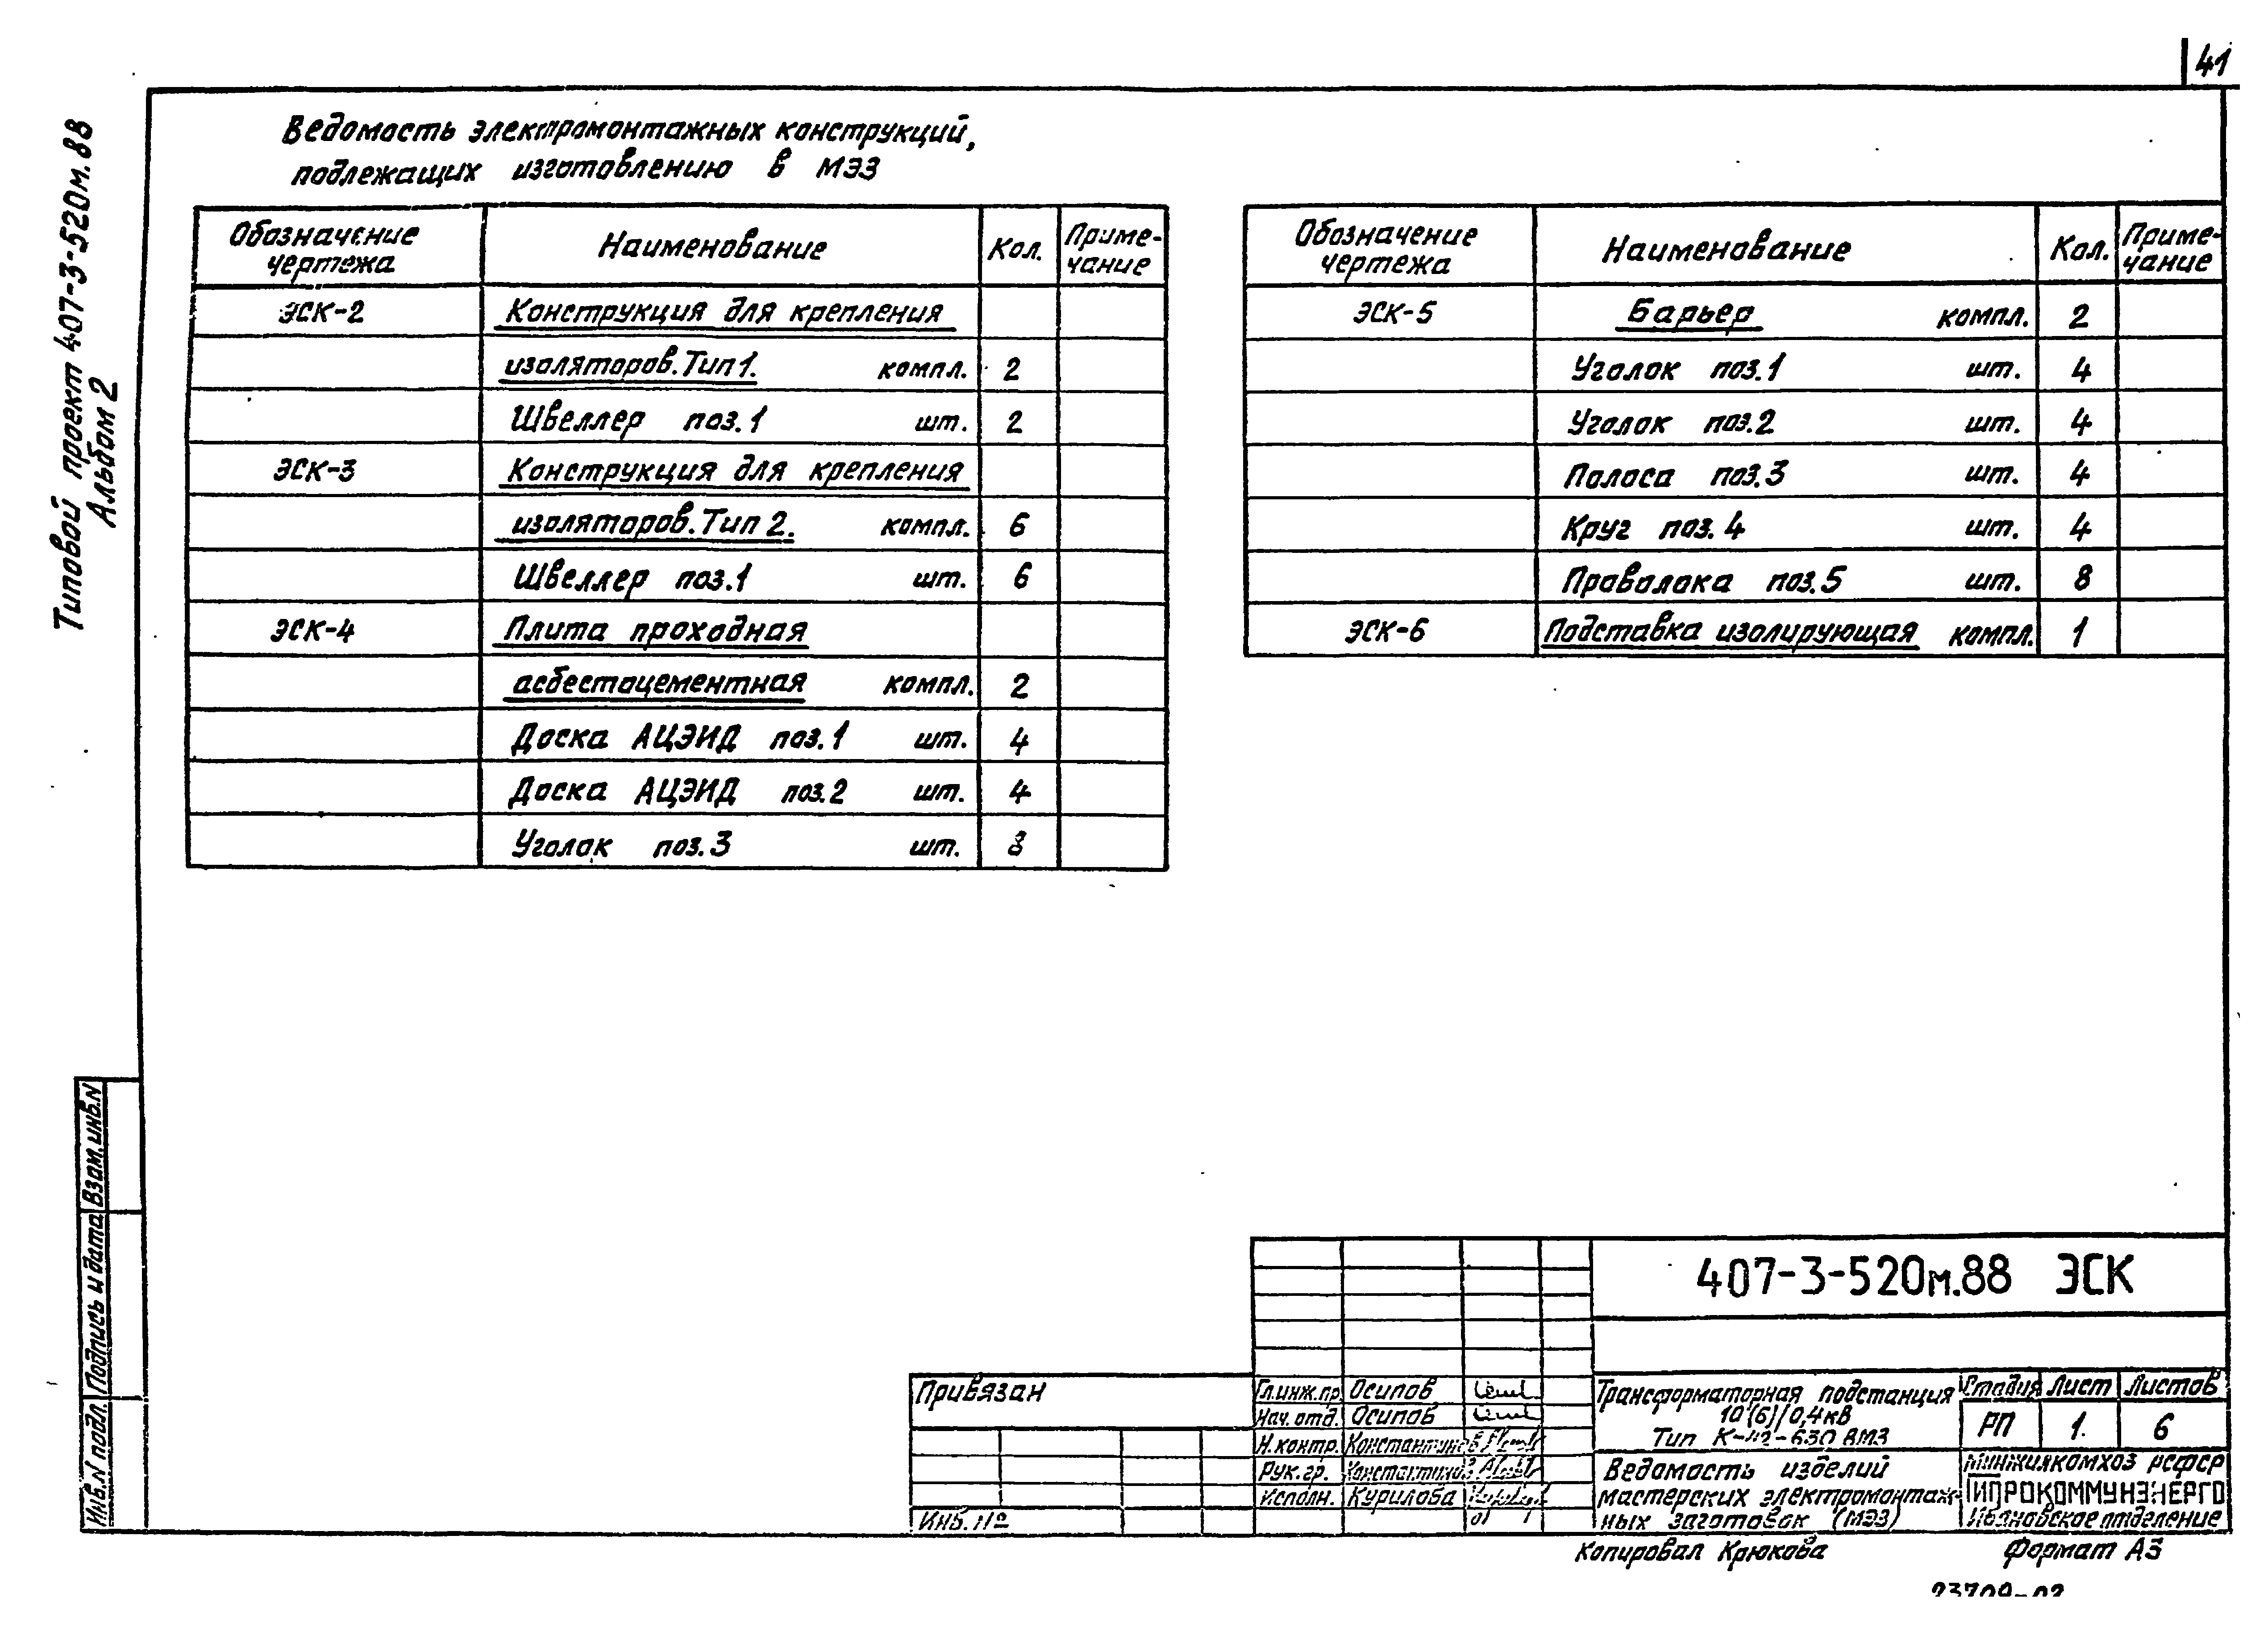 41
Типовой проект 407-3-520м.88
Альбом 2
Ведомость электромонтажных конструкций,
подлежащих изготовлению в МЭЗ
Обозначение чертежа Наименование Кол. Приме-чание
ЭСК-2 Конструкция для крепления
изоляторов. Тип 1. компл. 2
Швеллер поз.1 шт. 2
ЭСК-3 Конструкция для крепления
изоляторов. Тип 2. компл. 6
Швеллер поз.1 шт. 6
ЭСК-4 Плита проходная
асбестоцементная компл. 2
Доска АЦЭИД поз.1 шт. 4
Доска АЦЭИД поз.2 шт. 4
Уголок поз.3 шт. 8
Обозначение чертежа Наименование Кол. Приме-чание
ЭСК-5 Барьер компл. 2
Уголок поз.1 шт. 4
Уголок поз.2 шт. 4
Полоса поз.3 шт. 4
Круг поз.4 шт. 4
Проволока поз.5 шт. 8
ЭСК-6 Подставка изолирующая компл. 1
Взам. инв.N
Подпись и дата
Инв.N подл.
407-3-520м.88 ЭСК
Привязан
Инв. №
Гл.инж.пр. Осипов
Нач. отд. Осипов
Н.контр. Константинов
Рук.гр. Константинов
Исполн. Курилова
Трансформаторная подстанция
10(6)/0,4кВ
Тип К-42-630 ВМЗ
Стадия Лист Листов
РП 1. 6
Ведомость изделий
мастерских электромонтаж-
ных заготовок (МЭЗ)
Минжилкомхоз РСФСР
ГИПРОКОММУНЭНЕРГО
Ивановское отделение
Копировал Крюкова
Формат А3
23709-02